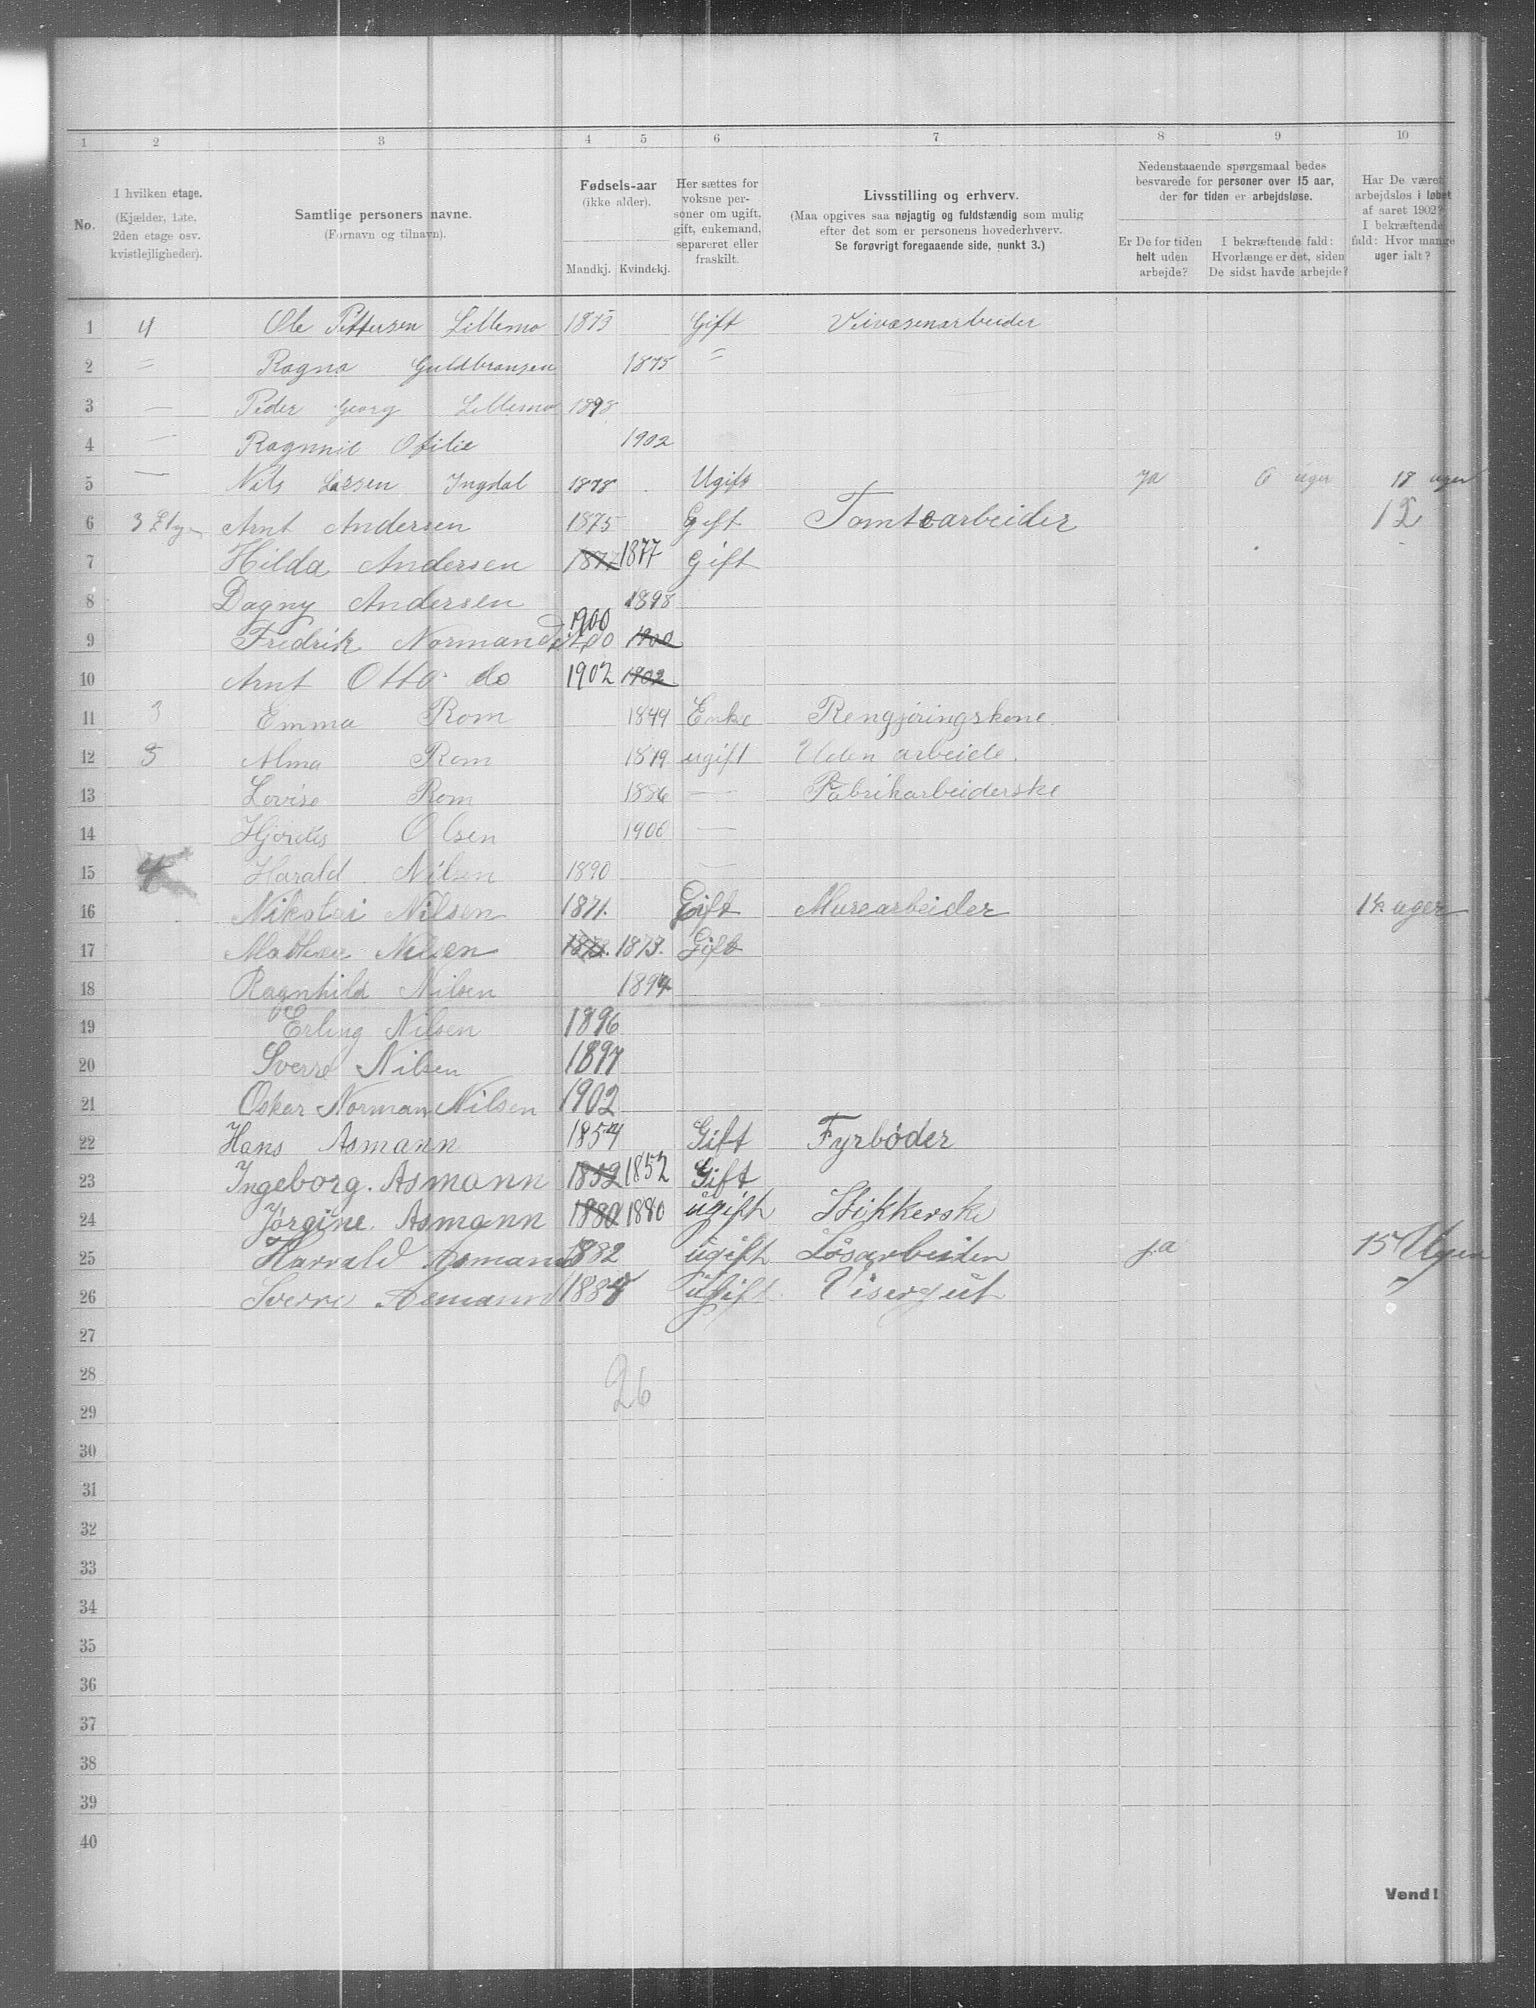 1 2 3 4 5 6 7 8 9 10
No.
I hvilken etage.
(Kjælder, 1ste,
2den etage osv.
kvistlejligheder).
Samtlige personers navne.
(Fornavn og tilnavn).
Fødsels-aar
(ikke alder).
Mandkj. Kvindekj.
Her sættes for
voksne per-
soner om ugift,
gift, enkemand,
separeret eller
fraskilt.
Livsstilling og erhverv.
(Maa opgives saa nøjagtig og fuldstændig som mulig
efter det som er personens hovederhverv.
Se forøvrigt foregaaende side, punkt 3.)
Nedenstaaende spørgsmaal bedes
besvarede for personer over 15 aar,
der for tiden er arbejdsløse.
Er De for tiden
helt uden
arbejde?
I bekræftende fald:
Hvorlænge er det, siden
De sidst havde arbejde?
Har De været
arbejdsløs i løbet
af aaret 1902?
I bekræftende
fald: Hvor mange
uger ialt?
1 4 Ole Pettersen Lillemo 1873 Gift Veivæsenarbeider
2 = Ragna Guldbransen 1875 =
3 — Peder Georg Lillemo 1898
4 — Ragnnil Otilie 1902
5 — Nils Larsen Ingdal 1878 Ugift ja 6 uger 18 uger
6 3 Etage Arnt Andersen 1875 Gift Tomtearbeider 12
7 Hilda Andersen 1877 1877 Gift
8 Dagny Andersen 1898
9 Fredrik Norman do 1900 1900
10 Arnt Otto do 1902 1902
11 3 Emma Rom 1849 Enke Rengjøringskone
12 3 Alma Rom 1879 ugift Uden arbeide.
13 Lovise Rom 1886 — Fabrikarbeiderske
14 Hjørdis Olsen 1900 —
15 4 Harald Nilsen 1890 —
16 Nikolai Nilsen 1871. Gift Murearbeider 14 uger
17 Nilsen 1873. Gift
18 Ragnhild Nilsen 1894
19 Erling Nilsen 1896
20 Sverre Nilsen 1897
21 Oskar Norman Nilsen 1902
22 Hans Asmann 1854 Gift Fyrbøder
23 Ingeborg. Asmann 1852 1852 Gift
24 Jørgine. Asmann 1880 1880 ugift Stikkerske
25 Harvald Asmann 1882 ugift Løsarbeiden ja 15 Uger
26 Sverre Asmann 1888 ugift Visergut "
27
28
26
29
30
31
32
33
34
35
36
37
38
39
40
Vend!